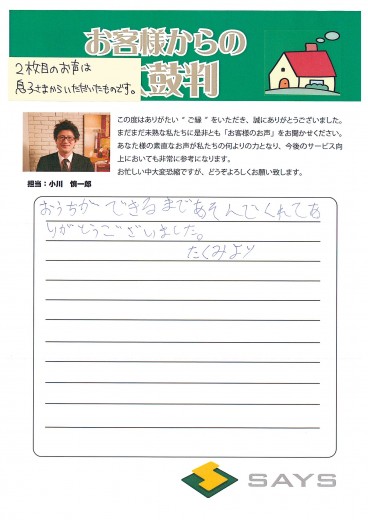 お客様からの
2枚目のお声は
息子さまからいただいたものです。
鼓判
この度はありがたい“ご縁”をいただき、誠にありがとうございました。
まだまだ未熟な私たちに是非とも「お客様のお声」をお聞かせください。
あなた様の素直なお声が私たちの何よりの力となり、今後のサービス向
上においても非常に参考になります。
お忙しい中大変恐縮ですが、どうぞよろしくお願い致します。
担当：小川 慎一郎
おうちができるまであそんでくれてあ
りがとうございました。
たくみより
SAYS